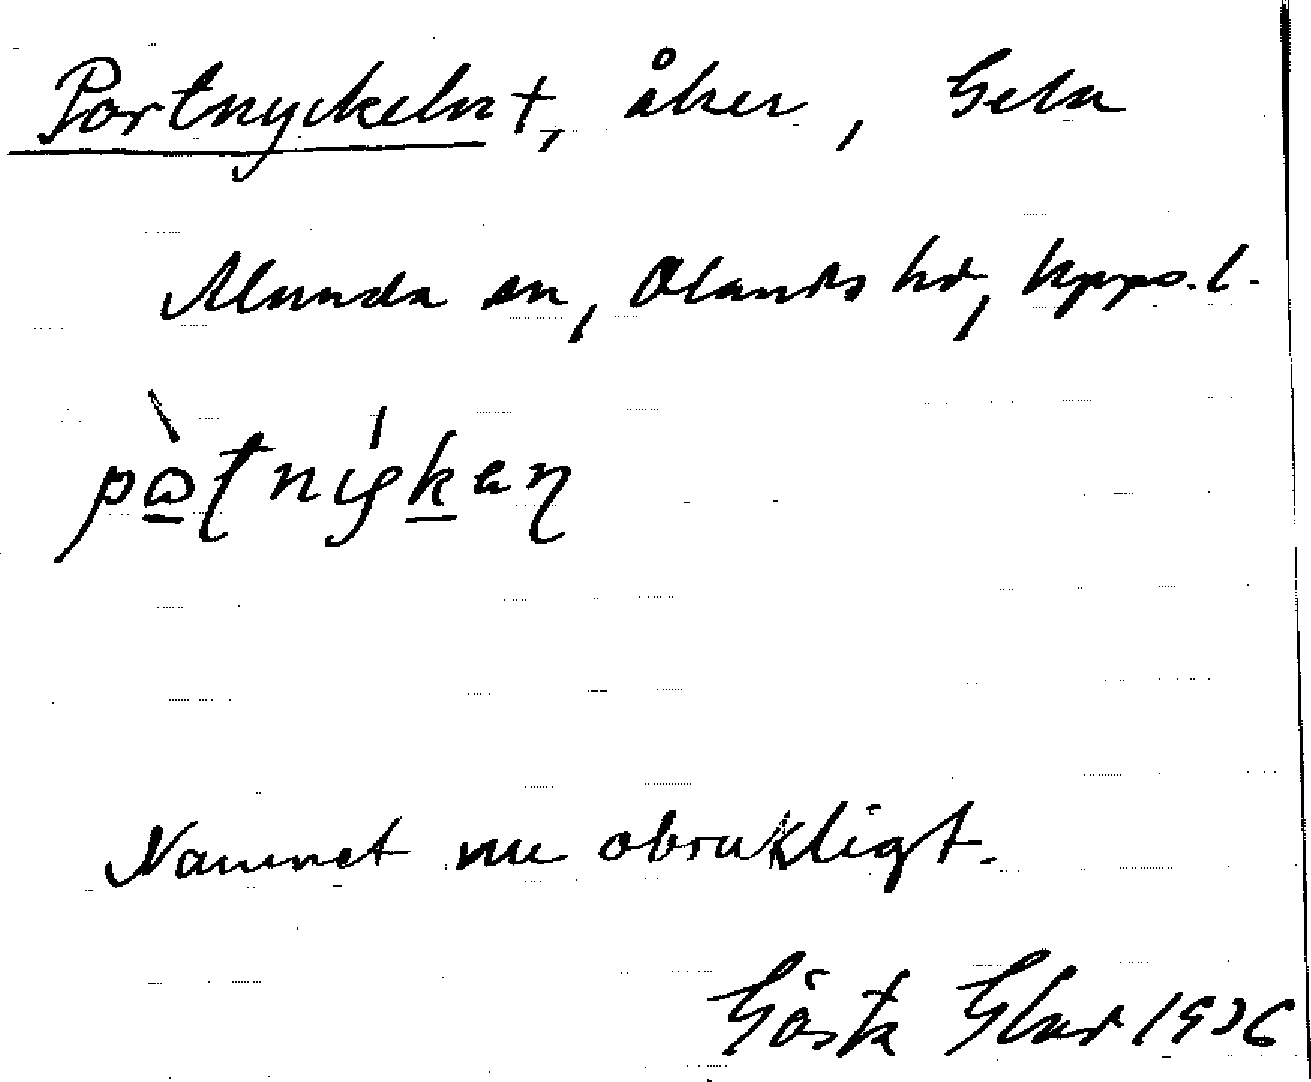 Portnyckeln †, åker, Gela
Alunda sn, Olands hd, Upps. l.
Namnet nu obrukligt.
Gösta Glad 1936